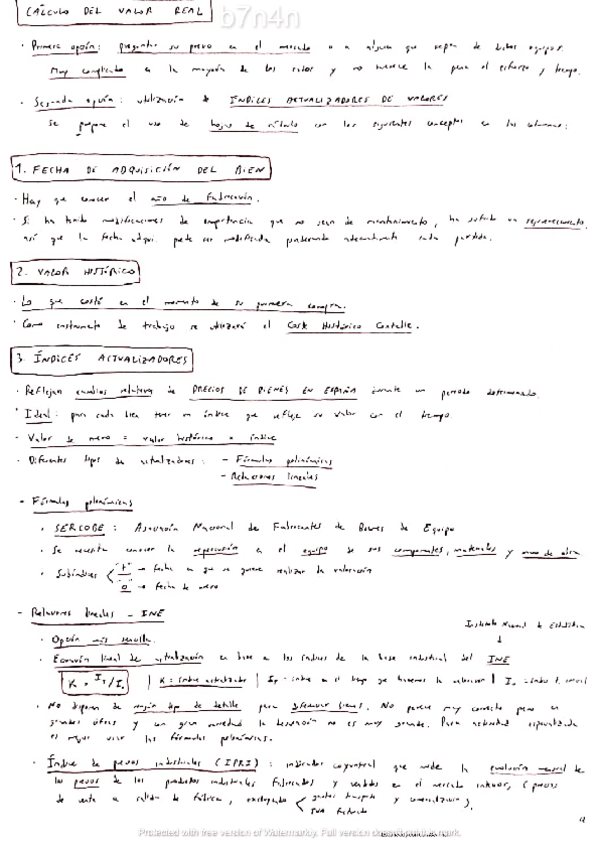 CÁLCULO DEL VALOR REAL
b7n4n
· Primera opción: preguntar su precio en el mercado o a alguien que sepa de dichos equipos.
Muy complicado en la mayoría de los casos y no merece la pena el esfuerzo y tiempo.
· Segunda opción: utilización de ÍNDICES ACTUALIZADORES DE VALORES
Se propone el uso de hojas de cálculo con los siguientes conceptos en las columnas:
1. FECHA DE ADQUISICIÓN DEL BIEN
· Hay que conocer el año de fabricación.
· Si ha tenido modificaciones de importancia que no sean de mantenimiento, ha sufrido un rejuvenecimiento,
así que la fecha adqui. puede ser modificada ponderando adecuadamente cada partida.
2. VALOR HISTÓRICO
· Lo que costó en el momento de su primera compra.
· Como instrumento de trabajo se utilizará el Coste Histórico Contable.
3. ÍNDICES ACTUALIZADORES
· Reflejan cambios relativos de PRECIOS DE BIENES EN ESPAÑA durante un periodo determinado
· Ideal: para cada bien tener un índice que refleje su valor con el tiempo
· Valor de nuevo = valor histórico x índice
· Diferentes tipos de actualizadores: - Fórmulas polinómicas
- Relaciones lineales
- Fórmulas polinómicas
· SERCOBE: Asociación Nacional de Fabricantes de Bienes de Equipo
· Se necesita conocer la repercusión en el equipo de sus componentes, materiales y mano de obra
· Subíndices "t" → fecha en que se quiere realizar la valoración
"o" → fecha de nuevo
- Relaciones lineales - INE
Instituto Nacional de Estadística
· Opción más sencilla.
· Ecuación lineal de actualización en base a los índices de la base industrial del INE
K = It/Io | K = índice actualizador | It = índice en el tiempo que hacemos la valoración | Io = índice t. inicial
· No disponen de ningún tipo de detalle para diferenciar bienes. No parece muy correcto pero en
grandes cifras y con gran cantidad la desviación no es muy grande. Para actividad especializada
es mejor usar las fórmulas polinómicas.
· Índice de precios industriales (IPRI): indicador coyuntural que mide la evolución mensual de
los precios de los productos industriales fabricados y vendidos en el mercado interior, (precios
de venta a salida de fábrica, excluyendo gastos transporte y comercialización).
IVA facturado
Protected with free version of Watermarkly. Full version doesn't put this mark.